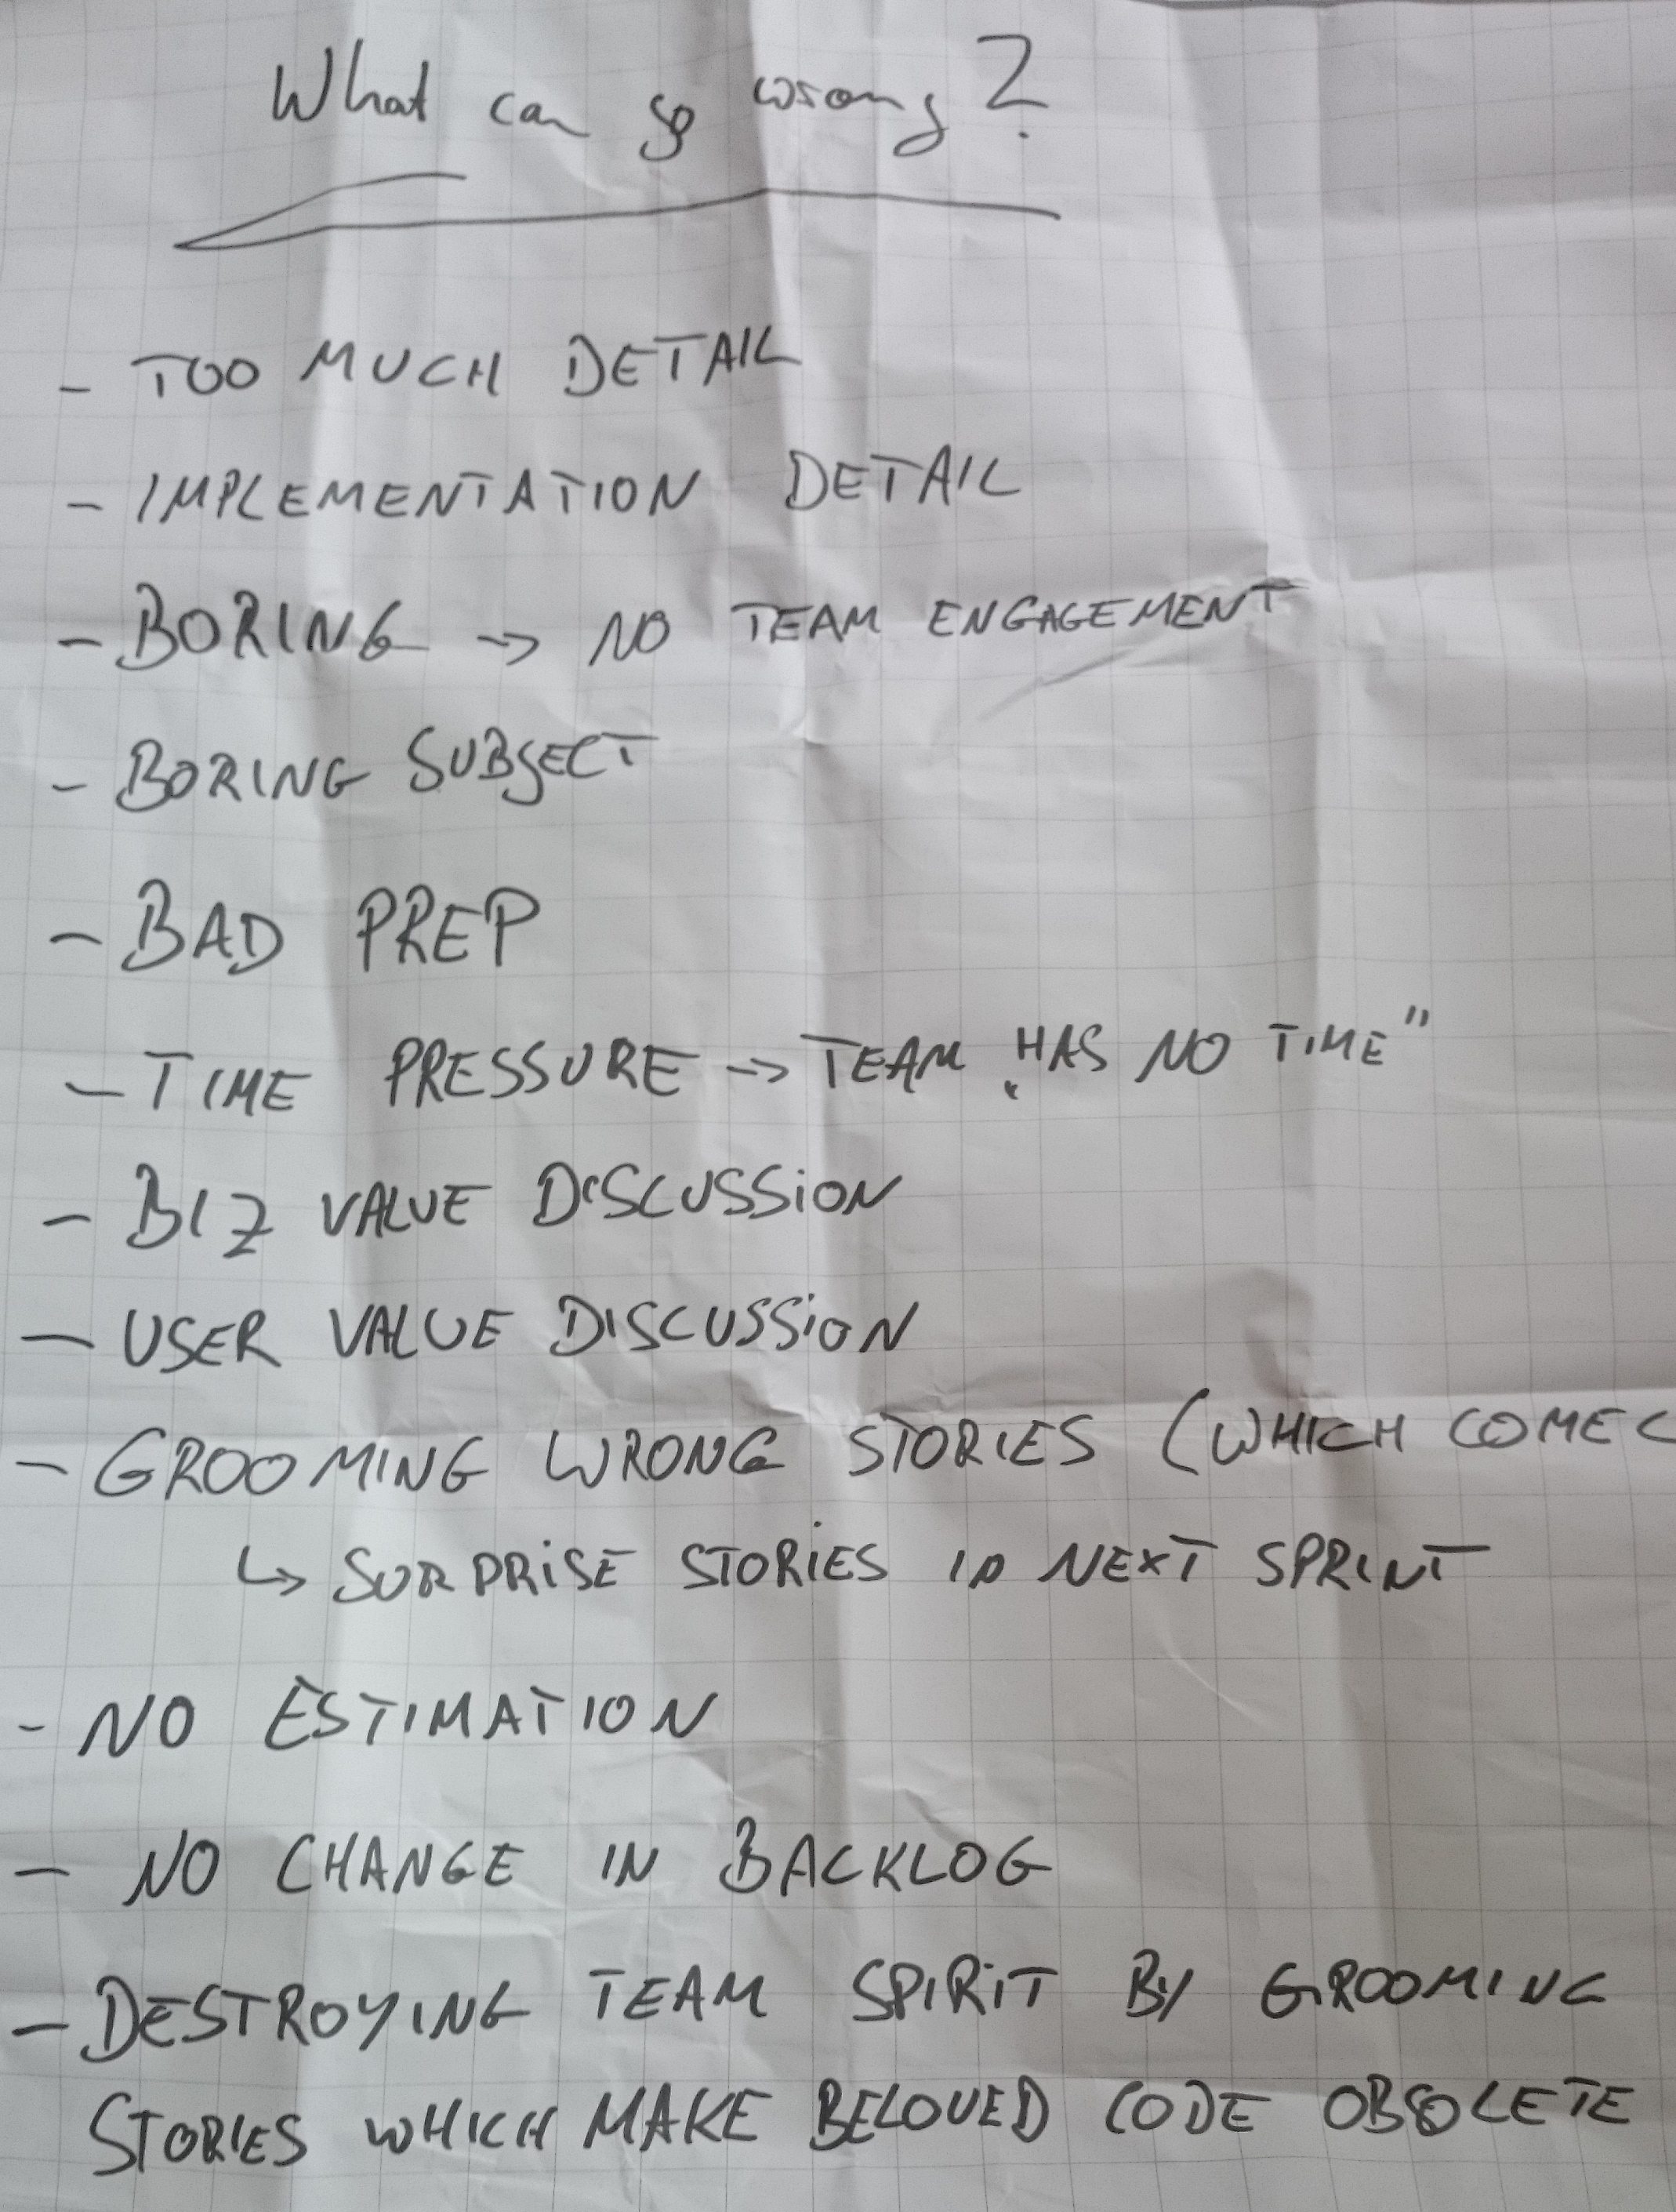 What can go wrong?
- TOO MUCH DETAIL
- IMPLEMENTATION DETAIL
- BORING -> NO TEAM ENGAGEMENT
- BORING SUBJECT
- BAD PREP
- TIME PRESSURE -> TEAM „HAS NO TIME”
- BIZ VALUE DISCUSSION
- USER VALUE DISCUSSION
- GROOMING WRONG STORIES (WHICH COME
↳ SURPRISE STORIES IN NEXT SPRINT
- NO ESTIMATION
- NO CHANGE IN BACKLOG
- DESTROYING TEAM SPIRIT BY GROOMING
STORIES WHICH MAKE BELOVED CODE OBSOLETE